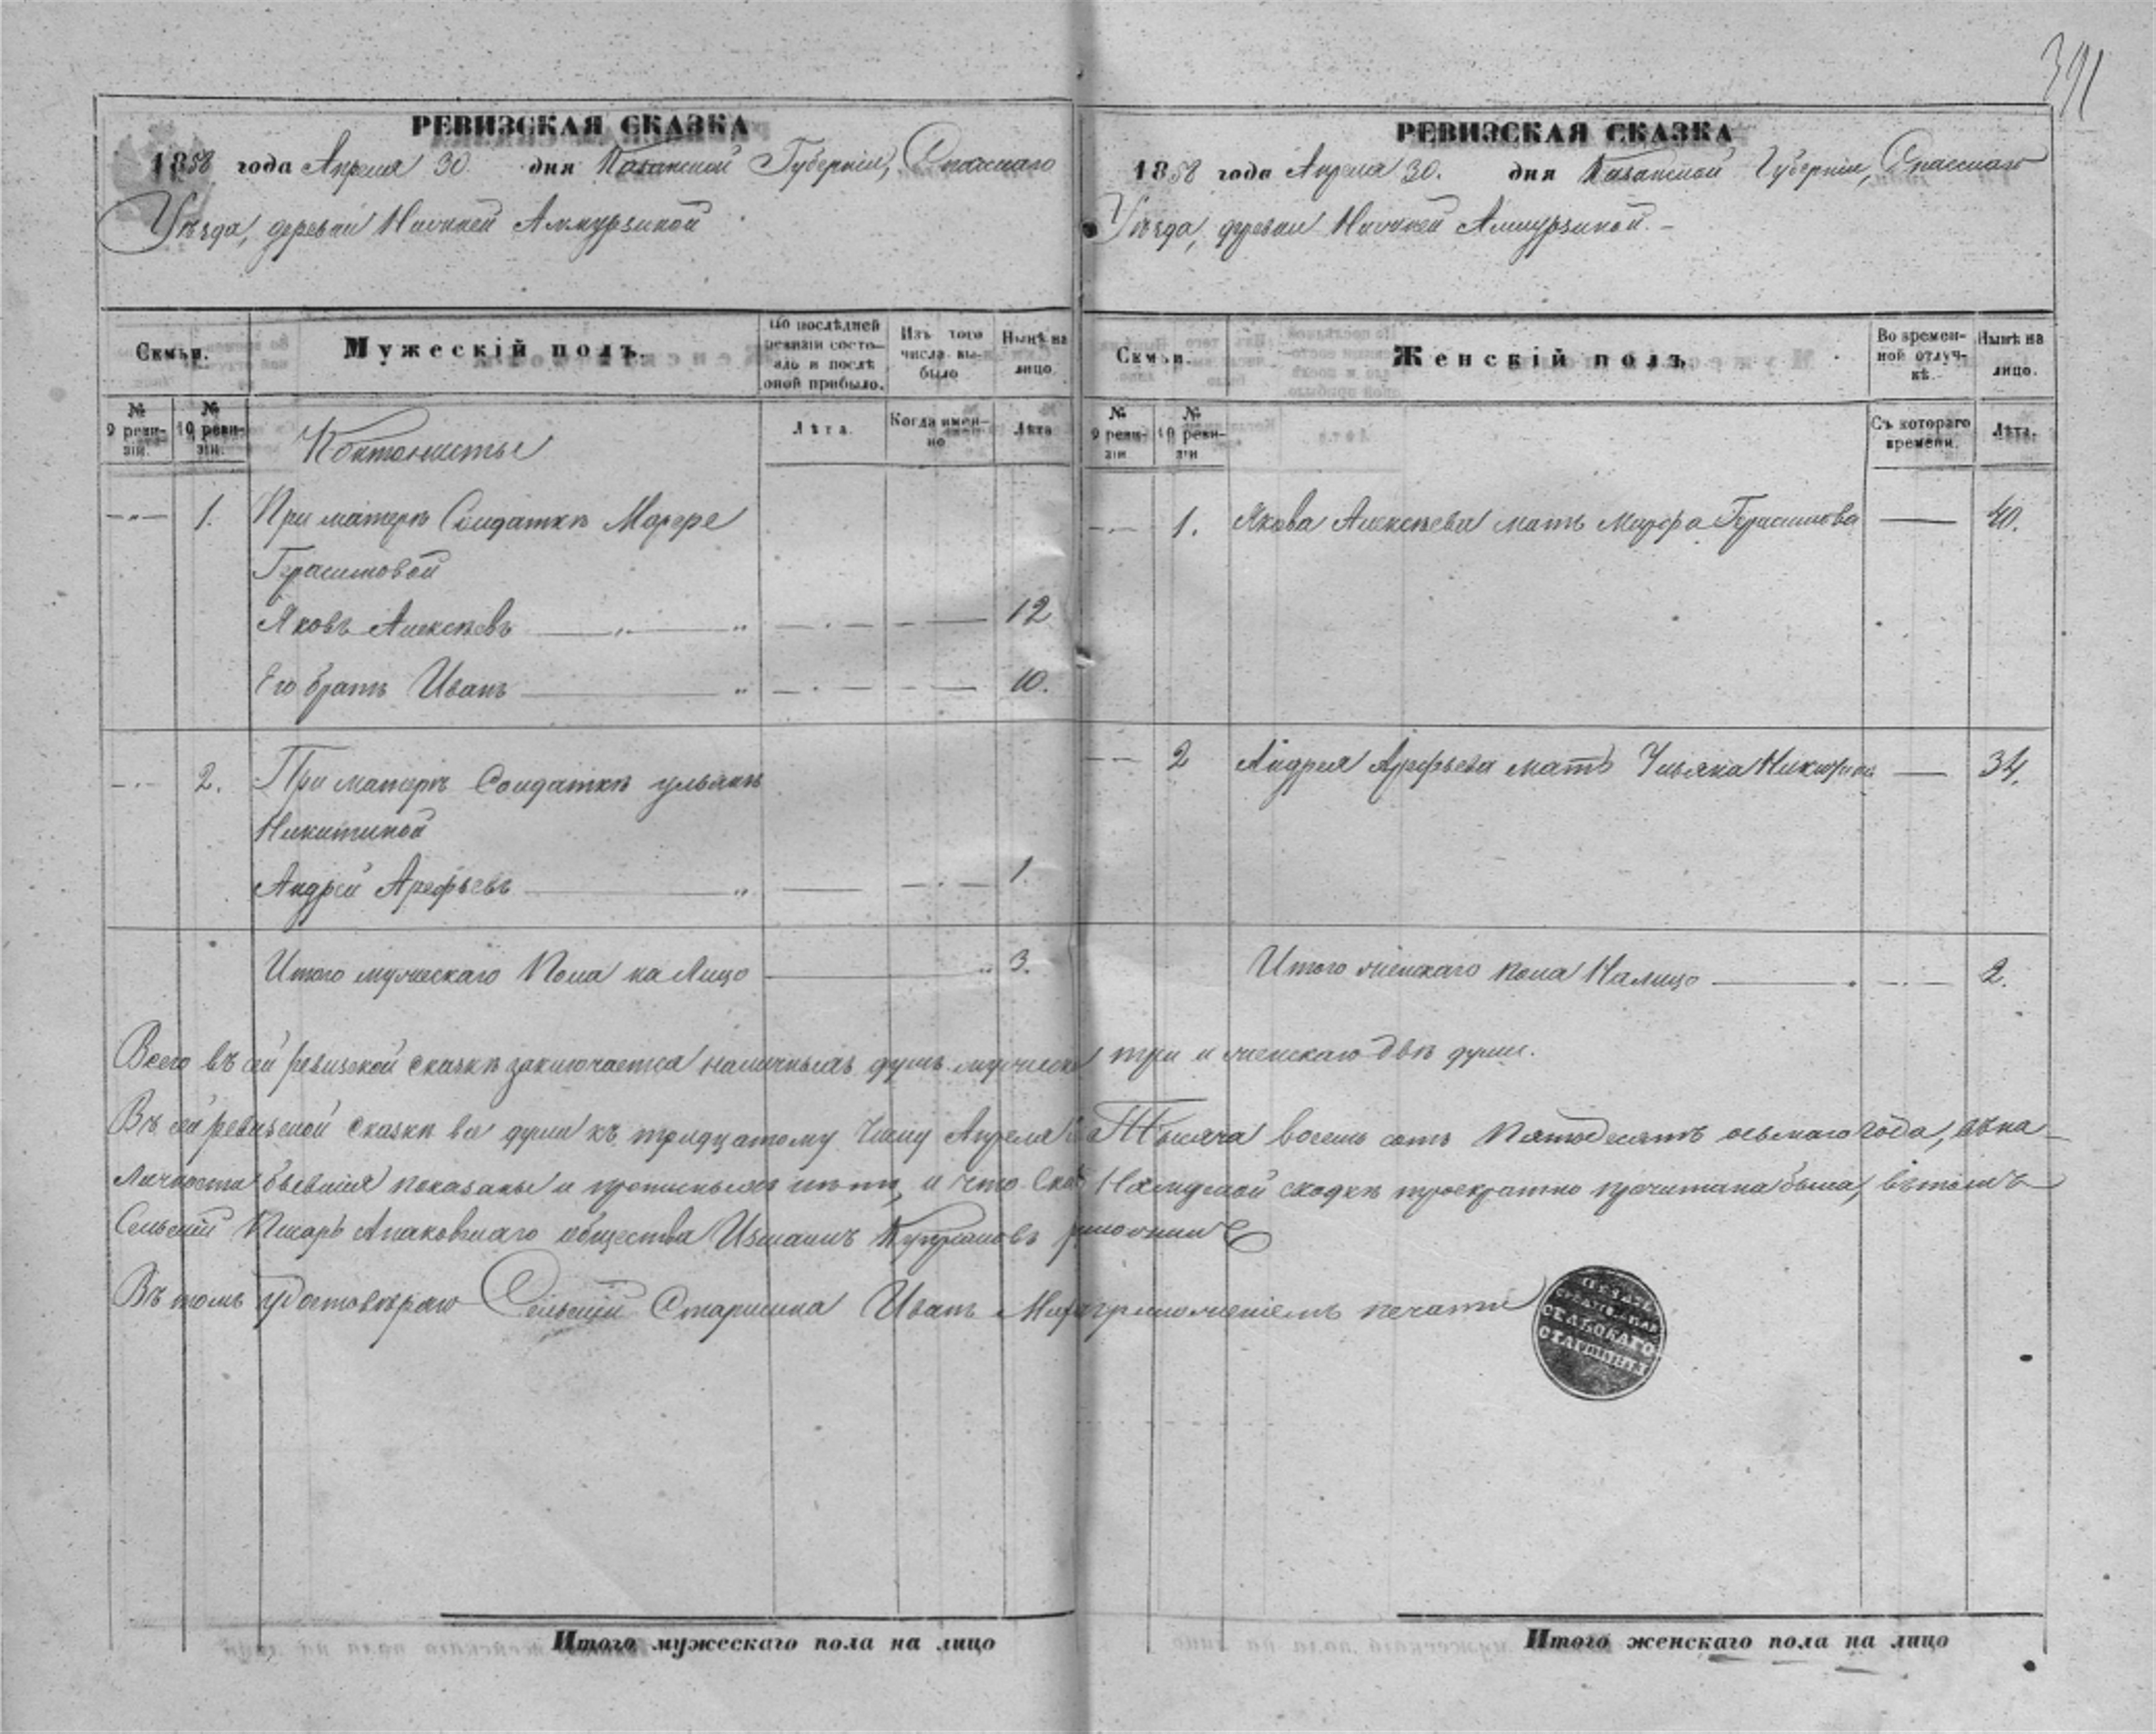 391
РЕВИЗСКАЯ СКАЗКА
1858 года Апреля 30 дня Казанской Губерніи, Спасскаго
Уѣзда, деревни Нижней Алмурзиной
Семьи.
Мужескій полъ.
По послѣдней ревизіи состояло и послѣ оной прибыло.
Изъ того числа выбыло
Нынѣ на лицо
№ 9 ревизіи.
№ 10 ревизіи.
Лѣта.
Когда именно
Лѣта
Контонисты
1. При матерѣ Солдаткѣ Марфе
Герасимовой
Яковъ Алексѣевъ 12
Его братъ Иванъ 10.
2. При матерѣ Солдаткѣ ульянѣ
Никитиной
Андрей Арефьевъ 1.
Итого мужескаго Пола на Лицо 3.
РЕВИЗСКАЯ СКАЗКА
1858 года Апреля 30. дня Казанской Губерніи, Спасскаго
Уѣзда, деревни Нижней Алмурзиной.
Семьи.
Женскій полъ.
Во временной отлучкѣ.
Нынѣ на лицо.
№ 9 ревизіи
№ 10 ревизіи
Съ котораго времени.
Лѣта.
1. Якова Алексѣева мать Марфа Герасимова 40.
2 Андрея Арефьева мать Ульяна 34.
Итого женскаго пола На лицо 2.
Всего въ сей ревизской сказкѣ заключается наличныхъ душъ мужеска три и женскаго двѣ души.
Въ сей ревизской сказкѣ все души къ тридцатому Числу Апреля Тысяча восемь сотъ Пятьдесятъ осьмаго года, въ на-
личности бывшія показаны и прописныхъ нѣтъ, и что сходкѣ троекратно прочитана была, въ томъ
Сельский Писарь общества
Въ томъ удостоверяю Сельский Старшина Иванъ приложеніемъ печати
ПЕЧАТЬ
СЕЛЬСКАГО
СТАРШИНЫ
Итого мужескаго пола на лицо
Итого женскаго пола на лицо